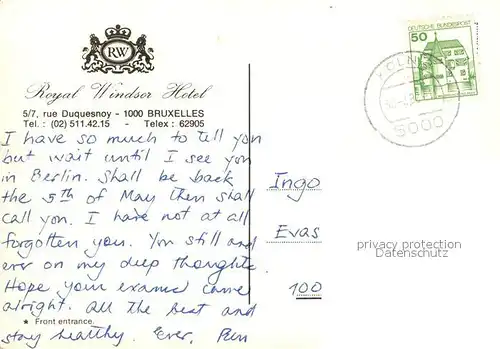 RW
Royal Windsor Hotel
5/7, rue Duquesnoy - 1000 BRUXELLES
Tel. : (02) 511.42.15 - Telex : 62905
I have so much to tell you
but wait until I see you
in Berlin. Shall be back
the 5th of May then shall
call you. I have not at all
forgotten you. You still and
ever on my deep thoughts.
Hope your exams came
alright. All the best and
* Front entrance.
stay healthy. Ever,
50
DEUTSCHE BUNDESPOST
KÖLN
5000
Ingo
Evas
100
privacy protection
Datenschutz